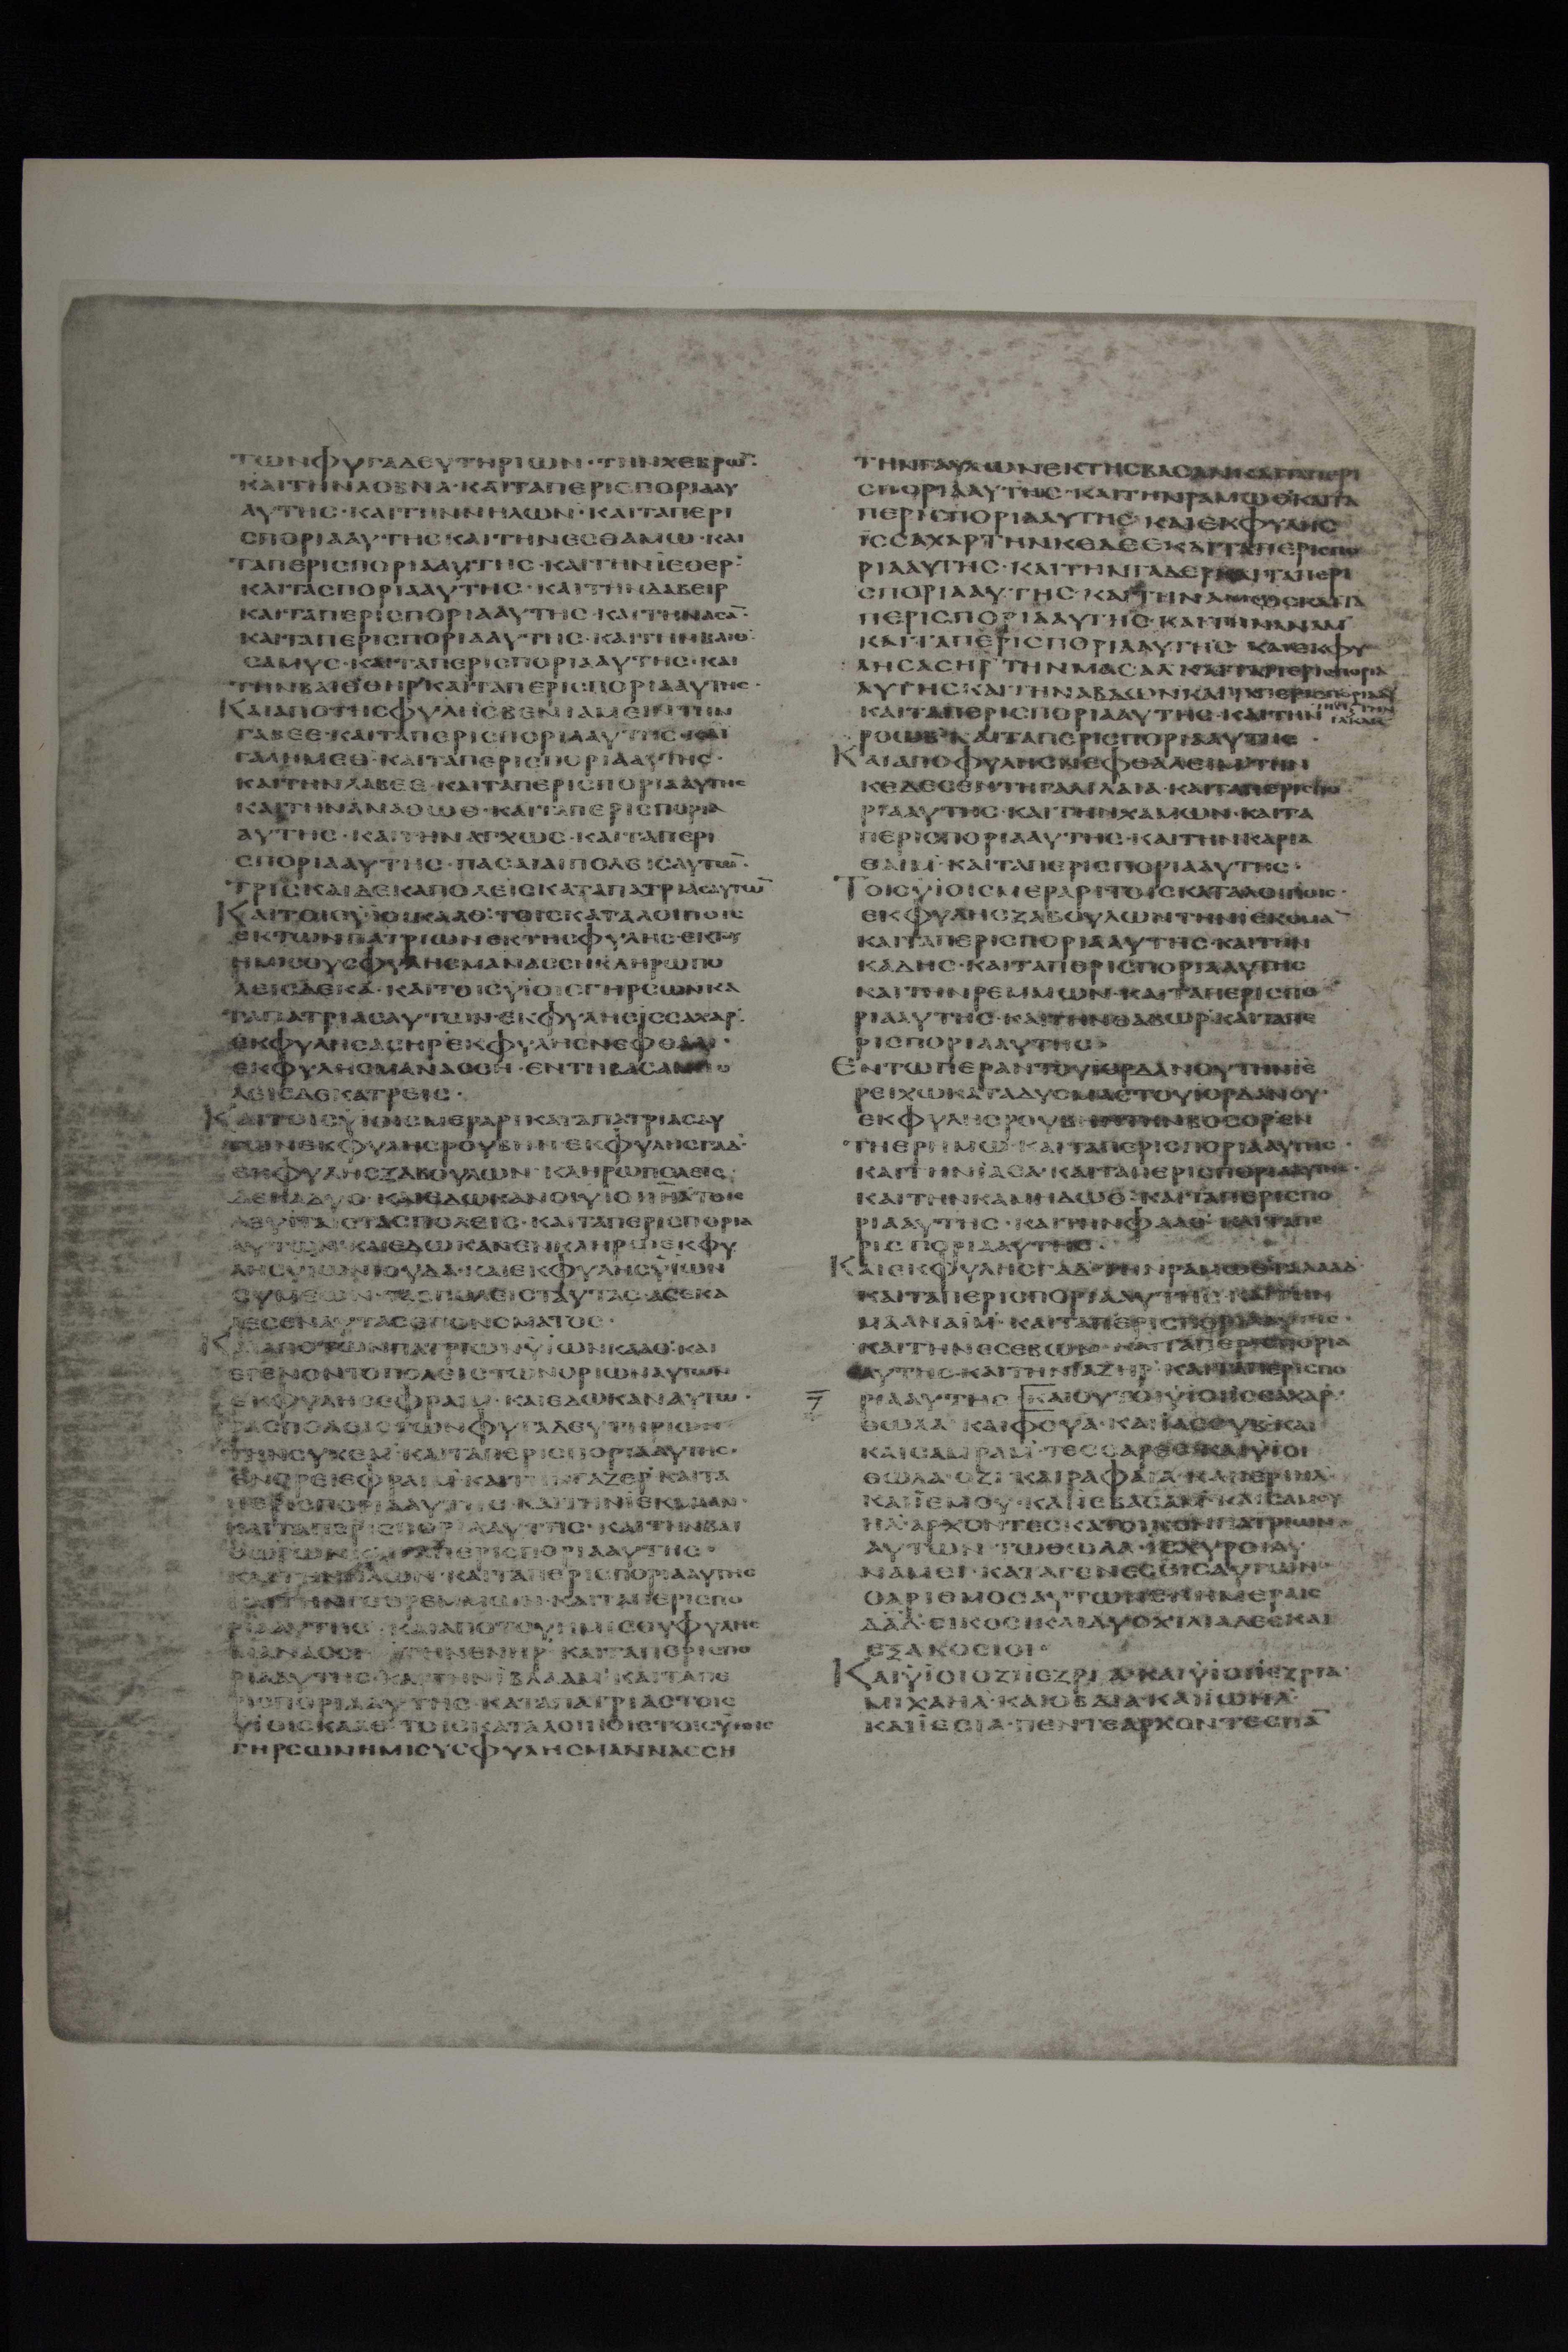 ΤΩΝΦΥΓΑΔΕΥΤΗΡΙΩΝ·ΤΗΝΧΕΒΡΩ̅·
ΚΑΙΤΗΝΛΟΒΝΑ·ΚΑΙΤΑΠΕΡΙΣΠΟΡΙΑΑΥ
ΑΥΤΗΣ·ΚΑΙΤΗΝΝΗΛΩΝ·ΚΑΙΤΑΠΕΡΙ
ΣΠΟΡΙΑΑΥΤΗΣΚΑΙΤΗΝΕΣΘΑΜΩ·ΚΑΙ
ΤΑΠΕΡΙΣΠΟΡΙΑΑΥΤΗΣ·ΚΑΙΤΗΝΙΕΘΕΡ·
ΚΑΙΤΑΣΠΟΡΙΑΑΥΤΗΣ·ΚΑΙΤΗΝΔΑΒΕΙΡ
ΚΑΙΤΑΠΕΡΙΣΠΟΡΙΑΑΥΤΗΣ·ΚΑΙΤΗΝΑΣΑ̅·
ΚΑΙΤΑΠΕΡΙΣΠΟΡΙΑΑΥΤΗΣ·ΚΑΙΤΗΝΒΑΙΘ
ΣΑΜΥΣ·ΚΑΙΤΑΠΕΡΙΣΠΟΡΙΑΑΥΤΗΣ·ΚΑΙ
ΤΗΝΒΑΙΘΘΗΡ·ΚΑΙΤΑΠΕΡΙΣΠΟΡΙΑΑΥΤΗΣ·
ΚΑΙΑΠΟΤΗΣΦΥΛΗΣΒΕΝΙΑΜΕΙΝΤΗΝ
ΓΑΒΕΕ·ΚΑΙΤΑΠΕΡΙΣΠΟΡΙΑΑΥΤΗΣ·ΚΑΙ
ΓΑΛΗΜΕΘ·ΚΑΙΤΑΠΕΡΙΣΠΟΡΙΑΑΥΤΗΣ·
ΚΑΙΤΗΝΓΑΒΕΕ·ΚΑΙΤΑΠΕΡΙΣΠΟΡΙΑΑΥΤΗΣ
ΚΑΙΤΗΝΑΝΑΘΩΘ·ΚΑΙΤΑΠΕΡΙΣΠΟΡΙΑ
ΑΥΤΗΣ·ΚΑΙΤΗΝΑΓΧΩΣ·ΚΑΙΤΑΠΕΡΙ
ΣΠΟΡΙΑΑΥΤΗΣ·ΠΑΣΑΙΑΙΠΟΛΕΙΣΑΥΤΩ̅·
ΤΡΙΣΚΑΙΔΕΚΑΠΟΛΕΙΣΚΑΤΑΠΑΤΡΙΑΣΑΥΤΩ̅
ΚΑΙΤΟΙΣΥΙΟΙΣΚΑΑΘ·ΤΟΙΣΚΑΤΑΛΟΙΠΟΙΣ
ΕΚΤΩΝΠΑΤΡΙΩΝΕΚΤΗΣΦΥΛΗΣ·ΕΚΤΟΥ
ΗΜΙΣΟΥΣΦΥΛΗΣΜΑΝΑΣΣΗΚΛΗΡΩΠΟ
ΛΕΙΣΔΕΚΑ·ΚΑΙΤΟΙΣΥΙΟΙΣΓΗΡΣΩΝΚΑ
ΤΑΠΑΤΡΙΑΣΑΥΤΩΝ·ΕΚΦΥΛΗΣΙΣΣΑΧΑΡ·
ΕΚΦΥΛΗΣΑΣΗΡ·ΕΚΦΥΛΗΣΝΕΦΘΑΛΙ·
ΕΚΦΥΛΗΣΜΑΝΑΣΣΗ·ΕΝΤΗΒΑΣΑΝΠΟ
ΛΕΙΣΔΕΚΑΤΡΕΙΣ·
ΚΑΙΤΟΙΣΥΙΟΙΣΜΕΡΑΡΙΚΑΤΑΠΑΤΡΙΑΣΑΥ
ΤΩΝΕΚΦΥΛΗΣΡΟΥΒΗΝ·ΕΚΦΥΛΗΣΓΑΔ·
ΕΚΦΥΛΗΣΖΑΒΟΥΛΩΝ·ΚΛΗΡΩΠΟΛΕΙΣ
ΔΕΚΑΔΥΟ·ΚΑΙΕΔΩΚΑΝΟΙΥΙΟΙΙΗ̅Λ̅ΤΟΙΣ
ΛΕΥΙΤΑΙΣΤΑΣΠΟΛΕΙΣ·ΚΑΙΤΑΠΕΡΙΣΠΟΡΙΑ
ΑΥΤΩΝ·ΚΑΙΕΔΩΚΑΝΕΝΚΛΗΡΩΕΚΦΥ
ΛΗΣΥΙΩΝΙΟΥΔΑ·ΚΑΙΕΚΦΥΛΗΣΥΙΩΝ
ΣΥΜΕΩΝ·ΤΑΣΠΟΛΕΙΣΤΑΥΤΑΣ·ΑΣΕΚΑ
ΛΕΣΕΝΑΥΤΑΣΕΠΟΝΟΜΑΤΟΣ·
ΚΑΙΑΠΟΤΩΝΠΑΤΡΙΩΝΥΙΩΝΚΑΑΘ·ΚΑΙ
ΕΓΕΝΟΝΤΟΠΟΛΕΙΣΤΩΝΟΡΙΩΝΑΥΤΩΝ
ΕΚΦΥΛΗΣΕΦΡΑΙΜ·ΚΑΙΕΔΩΚΑΝΑΥΤΩ·
ΤΑΣΠΟΛΕΙΣΤΩΝΦΥΓΑΔΕΥΤΗΡΙΩΝ
ΤΗΝΣΥΧΕΜ·ΚΑΙΤΑΠΕΡΙΣΠΟΡΙΑΑΥΤΗΣ·
ΕΝΟΡΕΙΕΦΡΑΙΜ·ΚΑΙΤΗΝΓΑΖΕΡ·ΚΑΙΤΑ
ΠΕΡΙΣΠΟΡΙΑΑΥΤΗΣ·ΚΑΙΤΗΝΙΕΚΜΑΑΝ·
ΚΑΙΤΑΠΕΡΙΣΠΟΡΙΑΑΥΤΗΣ·ΚΑΙΤΗΝΒΑΙ
ΘΩΡΩΝ·ΚΑΙΤΑΠΕΡΙΣΠΟΡΙΑΑΥΤΗΣ·
ΚΑΙΤΗΝΗΛΩΝ·ΚΑΙΤΑΠΕΡΙΣΠΟΡΙΑΑΥΤΗΣ
ΚΑΙΤΗΝΓΕΘΡΕΜΜΩΝ·ΚΑΙΤΑΠΕΡΙΣΠΟ
ΡΙΑΑΥΤΗΣ·ΚΑΙΑΠΟΤΟΥΗΜΙΣΟΥΦΥΛΗΣ
ΜΑΝΑΣΣΗ·ΤΗΝΕΝΗΡ·ΚΑΙΤΑΠΕΡΙΣΠΟ
ΡΙΑΑΥΤΗΣ·ΚΑΙΤΗΝΙΒΛΑΑΜ·ΚΑΙΤΑΠΕ
ΡΙΣΠΟΡΙΑΑΥΤΗΣ·ΚΑΤΑΠΑΤΡΙΑΣΤΟΙΣ
ΥΙΟΙΣΚΑΑΘ·ΤΟΙΣΚΑΤΑΛΟΙΠΟΙΣΤΟΙΣΥΙΟΙΣ
ΓΗΡΣΩΝΗΜΙΣΥΣΦΥΛΗΣΜΑΝΝΑΣΣΗ
ΤΗΝΓΑΥΛΩΝΕΚΤΗΣΒΑΣΑΝΚΑΙΤΑΠΕΡΙ
ΣΠΟΡΙΑΑΥΤΗΣ·ΚΑΙΤΗΝΡΑΜΩΘ·ΚΑΙΤΑ
ΠΕΡΙΣΠΟΡΙΑΑΥΤΗΣ·ΚΑΙΕΚΦΥΛΗΣ
ΙΣΣΑΧΑΡΤΗΝΚΕΔΕΣ·ΚΑΙΤΑΠΕΡΙΣΠΟ
ΡΙΑΑΥΤΗΣ·ΚΑΙΤΗΝΓΑΔΕΡ·ΚΑΙΤΑΠΕΡΙ
ΣΠΟΡΙΑΑΥΤΗΣ·ΚΑΙΤΗΝΑΜΩΣΚΑΙΤΑ
ΠΕΡΙΣΠΟΡΙΑΑΥΤΗΣ·ΚΑΙΤΗΝΑΝΑΜ
ΚΑΙΤΑΠΕΡΙΣΠΟΡΙΑΑΥΤΗΣ·ΚΑΙΕΚΦΥ
ΛΗΣΑΣΗΡ·ΤΗΝΜΑΣΑΛ·ΚΑΙΤΑΠΕΡΙΣΠΟΡΙΑ
ΑΥΤΗΣΚΑΙΤΗΝΑΒΔΩΝΚΑΙΤΑΠΕΡΙΣΠΟΡΙΑΑΥ
ΚΑΙΤΑΠΕΡΙΣΠΟΡΙΑΑΥΤΗΣ·ΚΑΙΤΗΝ
ΡΟΩΒ·ΚΑΙΤΑΠΕΡΙΣΠΟΡΙΑΑΥΤΗΣ·
ΚΑΙΑΠΟΦΥΛΗΣΝΕΦΘΑΛΕΙΜ·ΤΗΝ
ΚΕΔΕΣΕΝΤΗΓΑΛΙΛΑΙΑ·ΚΑΙΤΑΠΕΡΙΣΠΟ
ΡΙΑΑΥΤΗΣ·ΚΑΙΤΗΝΧΑΜΩΝ·ΚΑΙΤΑ
ΠΕΡΙΣΠΟΡΙΑΑΥΤΗΣ·ΚΑΙΤΗΝΚΑΡΙΑ
ΘΑΙΜ·ΚΑΙΤΑΠΕΡΙΣΠΟΡΙΑΑΥΤΗΣ·
ΤΟΙΣΥΙΟΙΣΜΕΡΑΡΙΤΟΙΣΚΑΤΑΛΟΙΠΟΙΣ·
ΕΚΦΥΛΗΣΖΑΒΟΥΛΩΝΤΗΝΙΕΚΟΜΑ̅
ΚΑΙΤΑΠΕΡΙΣΠΟΡΙΑΑΥΤΗΣ·ΚΑΙΤΗΝ
ΚΑΔΗΣ·ΚΑΙΤΑΠΕΡΙΣΠΟΡΙΑΑΥΤΗΣ
ΚΑΙΤΗΝΡΕΜΜΩΝ·ΚΑΙΤΑΠΕΡΙΣΠΟ
ΡΙΑΑΥΤΗΣ·ΚΑΙΤΗΝΘΑΒΩΡ·ΚΑΙΤΑΠΕ
ΡΙΣΠΟΡΙΑΑΥΤΗΣ·
ΕΝΤΩΠΕΡΑΝΤΟΥΙΟΡΔΑΝΟΥΤΗΝΙΕ
ΡΕΙΧΩΚΑΤΑΔΥΣΜΑΣΤΟΥΙΟΡΔΑΝΟΥ·
ΕΚΦΥΛΗΣΡΟΥΒΗΝΤΗΝΒΟΣΟΡΕΝ
ΤΗΕΡΗΜΩ·ΚΑΙΤΑΠΕΡΙΣΠΟΡΙΑΑΥΤΗΣ·
ΚΑΙΤΗΝΙΑΣΑ·ΚΑΙΤΑΠΕΡΙΣΠΟΡΙΑΑΥΤΗΣ·
ΚΑΙΤΗΝΚΑΜΗΔΩΘ·ΚΑΙΤΑΠΕΡΙΣΠΟ
ΡΙΑΑΥΤΗΣ·ΚΑΙΤΗΝΦΑΑΘ·ΚΑΙΤΑΠΕ
ΡΙΣΠΟΡΙΑΑΥΤΗΣ·
ΚΑΙΕΚΦΥΛΗΣΓΑΔ·ΤΗΝΡΑΜΩΘΓΑΛΑΑΔ
ΚΑΙΤΑΠΕΡΙΣΠΟΡΙΑΑΥΤΗΣ·ΚΑΙΤΗΝ
ΜΑΑΝΑΙΜ·ΚΑΙΤΑΠΕΡΙΣΠΟΡΙΑΑΥΤΗΣ·
ΚΑΙΤΗΝΕΣΕΒΩΝ·ΚΑΙΤΑΠΕΡΙΣΠΟΡΙΑ
ΑΥΤΗΣ·ΚΑΙΤΗΝΓΑΖΗΡ·ΚΑΙΤΑΠΕΡΙΣΠΟ
ΡΙΑΑΥΤΗΣ ΚΑΙΟΥΤΟΙΥΙΟΙΙΣΣΑΧΑΡ·
ΘΩΛΑ·ΚΑΙΦΟΥΑ·ΚΑΙΙΑΣΟΥΒ·ΚΑΙ
ΚΑΙΣΑΜΡΑΜ·ΤΕΣΣΑΡΕΣ·ΚΑΙΥΙΟΙ
ΘΩΛΑ·ΟΖΙ·ΚΑΙΡΑΦΑΙΑ·ΚΑΙΙΕΡΙΗΛ·
ΚΑΙΙΕΜΟΥ·ΚΑΙΙΕΒΑΣΑΜ·ΚΑΙΣΑΜΟΥ
ΗΛ·ΑΡΧΟΝΤΕΣΚΑΤΟΙΚΟΝΠΑΤΡΙΩΝ
ΑΥΤΩΝ·ΤΩΘΩΛΑ·ΙΣΧΥΡΟΙΔΥ
ΝΑΜΕΙ·ΚΑΤΑΓΕΝΕΣΕΙΣΑΥΤΩΝ·
ΟΑΡΙΘΜΟΣΑΥΤΩΝΕΝΗΜΕΡΑΙΣ
ΔΑ̅Δ·ΕΙΚΟΣΙΚΑΙΔΥΟΧΙΛΙΑΔΕΣΚΑΙ
ΕΞΑΚΟΣΙΟΙ·
ΚΑΙΥΙΟΙΟΖΙΙΕΖΡΙΑ·ΚΑΙΥΙΟΙΙΕΖΡΙΑ·
ΜΙΧΑΗΛ·ΚΑΙΟΒΔΙΑ·ΚΑΙΙΩΗΛ·
ΚΑΙΙΕΣΙΑ·ΠΕΝΤΕΑΡΧΟΝΤΕΣΠΑ̅